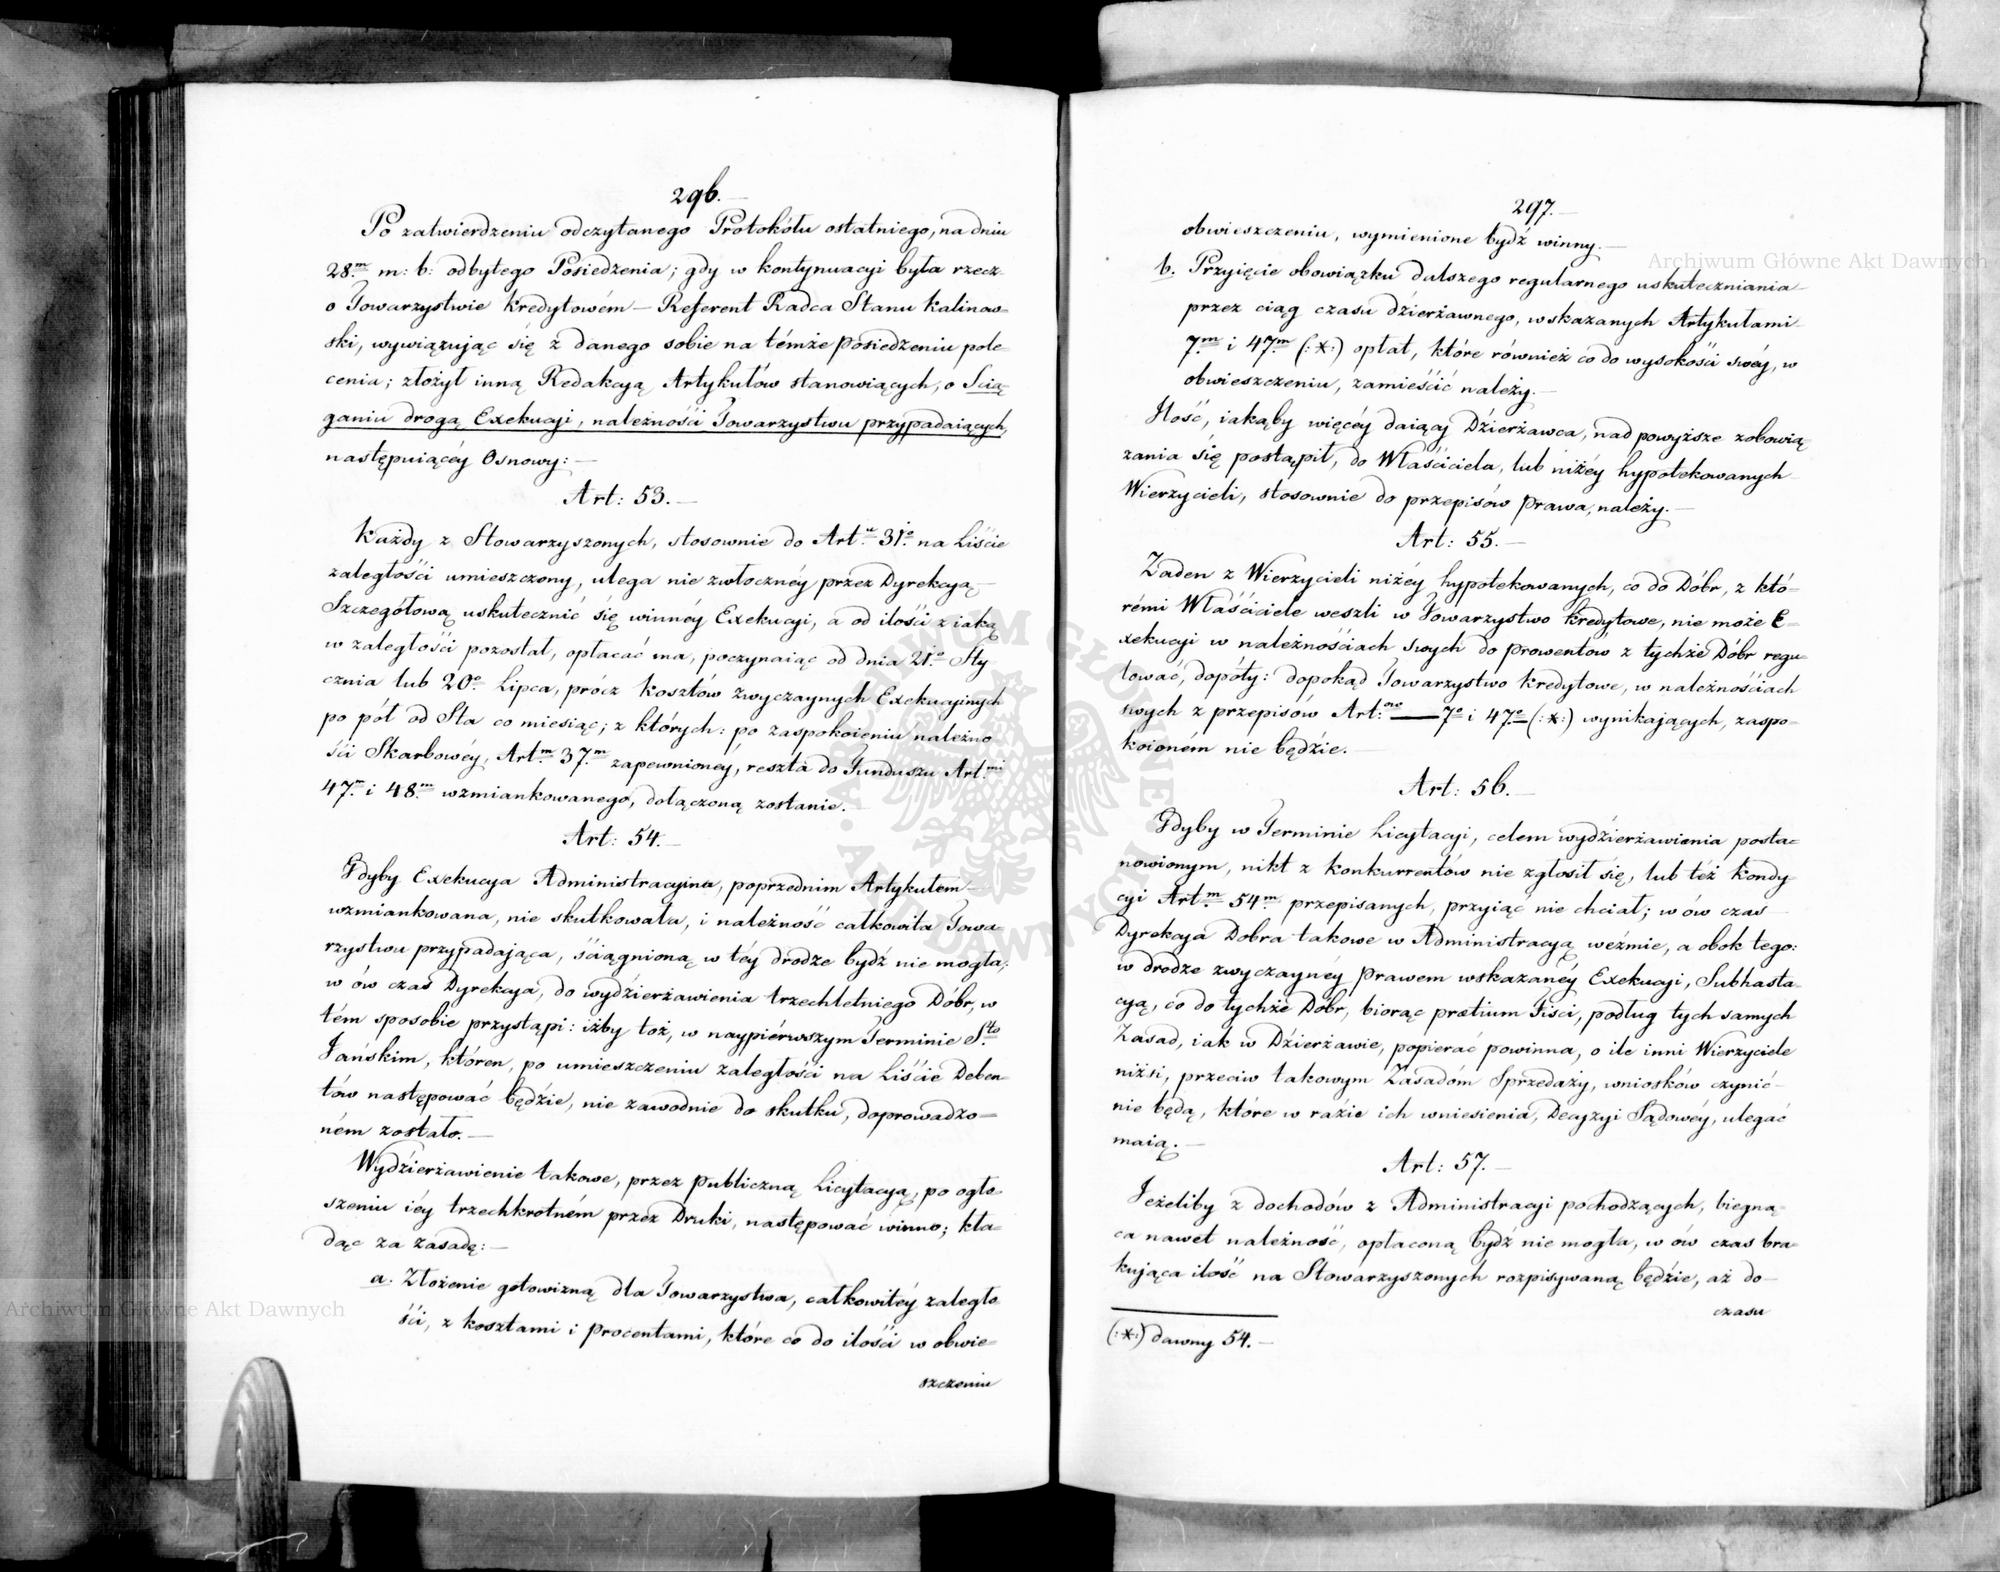 296.
Po zatwierdzeniu odczytanego Protokółu ostatniego, na dniu
28.m m: b: odbytego Posiedzenia; gdy w kontynuacyi była rzecz
o Towarzystwie Kredytowém — Referent Radca Stanu Kalinow=
ski, wywiązując się z danego sobie na témże posiedzeniu pole=
cenia; złożył inną Redakcyą Artykułów stanowiących, o Scią
ganiu drogą Exekucyi, należności Towarzystwu przypadaiących,
następuiącéy Osnowy: —
Art: 53. —
Każdy z Stowarzyszonych, stosownie do Art.u 31.o na Liście
zaległości umieszczony, ulega nie zwłocznéy przez Dyrekcyą
Szczegółową uskutecznić się winnéy Exekucyi, a od ilości z iaką
w zaległości pozostał, opłacać ma, poczynaiąc od dnia 21.o Sty
cznia lub 20.o Lipca, prócz kosztów zwyczaynych Exekucyinych
po pół od Sta co miesiąc; z których: po zaspokoieniu należno
ści Skarbowéy, Art.m 37.m zapewnionéy, reszta do Funduszu Art.mi
47.m i 48.m wzmiankowanego, dołączoną zostanie. —
Art: 54. —
Gdyby Exekucya Administracyina, poprzednim Artykułem —
wzmiankowana, nie skutkowała, i należność całkowita Towa=
rzystwu przypadająca, ściągnioną w téy drodze bydź nie mogła;
w ów czas Dyrekcya, do wydzierżawienia trzechletniego Dóbr, w
tém sposobie przystąpi: iżby toż, w naypiérwszym Terminie S.to
Jańskim, któren, po umieszczeniu zaległości na Liście Deben=
tów następować będzie, nie zawodnie do skutku, doprowadzo=
ném zostało. —
Wydzierżawienie takowe, przez publiczną Licytacyą, po ogło=
szeniu iéy trzechkrotném przez Druki, następować winno; kła=
dąc za zasadę: —
a. Złożenie gotowizną dla Towarzystwa, całkowitéy zaległo
ści, z kosztami i procentami, które co do ilości w obwie=
szczeniu
297. —
obwieszczeniu, wymienione bydź winny. —
b. Przyięcie obowiązku dalszego regularnego uskuteczniania
przez ciąg czasu dzierżawnego, wskazanych Artykułami
7.m i 47.m (:*:) opłat, które również co do wysokości swéy, w
obwieszczeniu, zamieścić należy. —
Ilość, iakąby więcéy daiący Dzierżawca, nad powyższe zobowią
zania się postąpił, do Właściciela, lub niżéy hypotekowanych
Wierzycieli, stosownie do przepisów Prawa, należy. —
Art: 55. —
Żaden z Wierzycieli niżéy hypotekowanych, co do Dóbr, z któ=
rémi Właściciele weszli w Towarzystwo Kredytowe, nie może E=
xekucyi w należnościach swych do prowentów z tychże Dóbr regu
lować, dopóty: dopokąd Towarzystwo Kredytowe, w należnościach
swych z przepisów Art:ów — 7.o i 47.o (:*:) wynikających, zaspo=
koioném nie będzie. —
Art: 56. —
Gdyby w Terminie Licytacyi, celem wydzierżawienia posta=
nowionym, nikt z konkurrentów nie zgłosił się, lub też Kondy
cyi Art.m 54.m przepisanych, przyiąć nie chciał; w ów czas
Dyrekcya Dobra takowe w Administracyą weźmie, a obok tego:
w drodze zwyczaynéy prawem wskazanéy Exekucyi, Subhasta=
cyą, co do tychże Dóbr, biorąc pretium Fisci, podług tych samych
Zasad, iak w Dzierżawie, popierać powinna, o ile inni Wierzyciele
niżsi, przeciw takowym Zasadóm Sprzedaży, wniosków czynić
nie będą, które w razie ich wniesienia, Decyzyi Sądowéy, ulegać
maią. —
Art: 57. —
Jeżeliby z dochodów z Administracyi pochodzących, biegną=
ca nawet należność, opłaconą bydź nie mogła, w ów czas bra=
kująca ilość na Stowarzyszonych rozpisywaną będzie, aż do
czasu
(:*:) dawny 54. —
Archiwum Główne Akt Dawnych
Archiwum Główne Akt Dawnych
ARCHIWUM GŁÓWNE AKT DAWNYCH